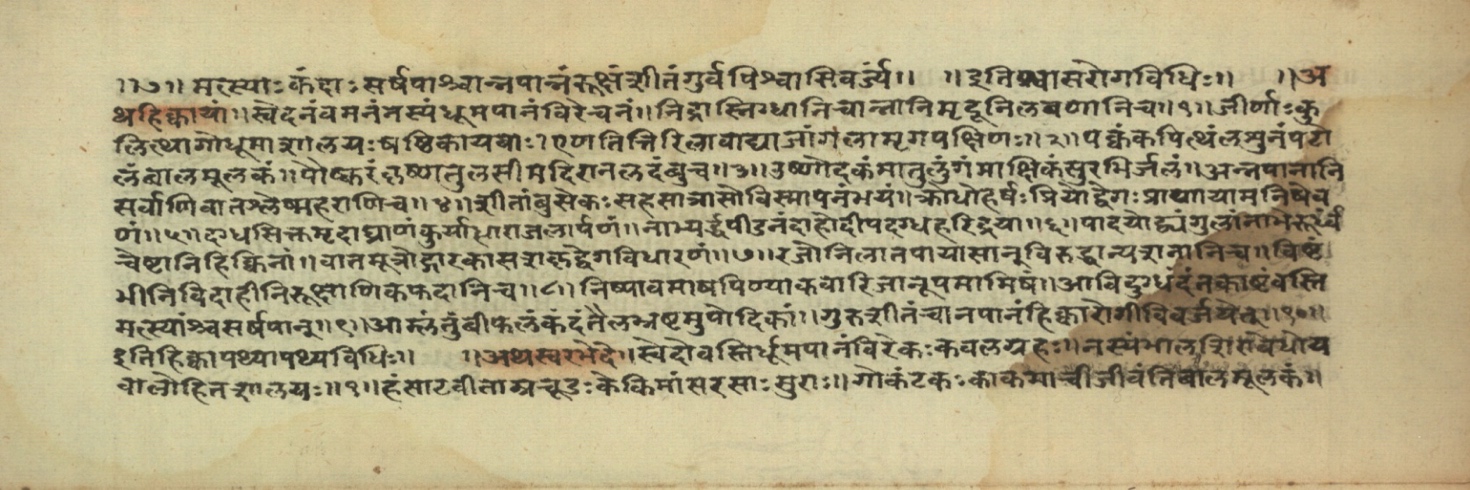 ॥७॥ मत्स्याः कंदाः सर्षपाश्चान्नपानंरूक्षंशीतंगुर्वपिश्वासिवर्ज्यं॥ ॥इतिश्वासरोगविधिः॥ ॥अ
थहिक्कायां॥स्वेदनंवमनंनस्यंधूमपानंविरेचनं॥निद्रास्निग्धानिचान्नानिमृदूनिलवणानिच॥१॥जीर्णाःकु
लित्थागोधूमाशालयःषष्ठिकायवाः।एणतित्तिरिलावाद्याजांगलामृगपक्षिणः॥२॥पक्वंकपित्थंलशुनंपटो
लंबालमूलकं॥पौष्करंकृष्णतुलसीमदिरानलदंबुच॥३॥उष्णोदकंमातुलुंगंमाक्षिकंसुरभिर्जलं॥अन्नपानानि
सर्वाणिवातश्लेष्महराणिच॥४॥शीतांबुसेकःसहसात्रासोविस्मापनंभयं॥क्रोधोहर्षःप्रियोद्वेगःप्राणायामनिषेव
णं॥५॥दग्धसिक्तमृदाघ्राणंकुर्याद्धाराजलार्पणं॥नाभ्यर्द्धपीडनंदाहोदीपदग्धहरिद्रया॥६॥पादयोर्द्व्यंगुलांनाभेरूर्ध्वं
चेष्टानिहिक्किनां॥वातमूत्रोद्गारकासशकृद्वेगविधारणं॥७॥रजोनिलातपायासानुविरुद्धान्यशनानिच॥विष्टं
भीनिविदाहीनिरूक्षाणिकफदानिच॥८॥निष्पावमाषपिण्याकवारिजानूपमामिषं॥आविदुग्धंदंतकाष्टंबस्ति
मत्स्यांश्चसर्षपान्॥९॥आम्लंतुंबीफलंकंदंतैलभ्रष्टमुपोदिकां॥गुरुशीतंचानपानंहिक्कारोगीविवर्जयेत्॥१०॥
इतिहिक्कापथ्यापथ्यविधिः॥ ॥अथस्वरभेदे॥स्वेदोवस्तिर्धूमपानंविरेकःकवलग्रहः॥नस्यंभालशिरावेधोय
वालोहितशालयः॥१॥हंसाटवीताम्रचूडःकेकिमांसरसाःसुराः॥गोकंटकःकाकमाचीजीवंतिबालमूलकं॥